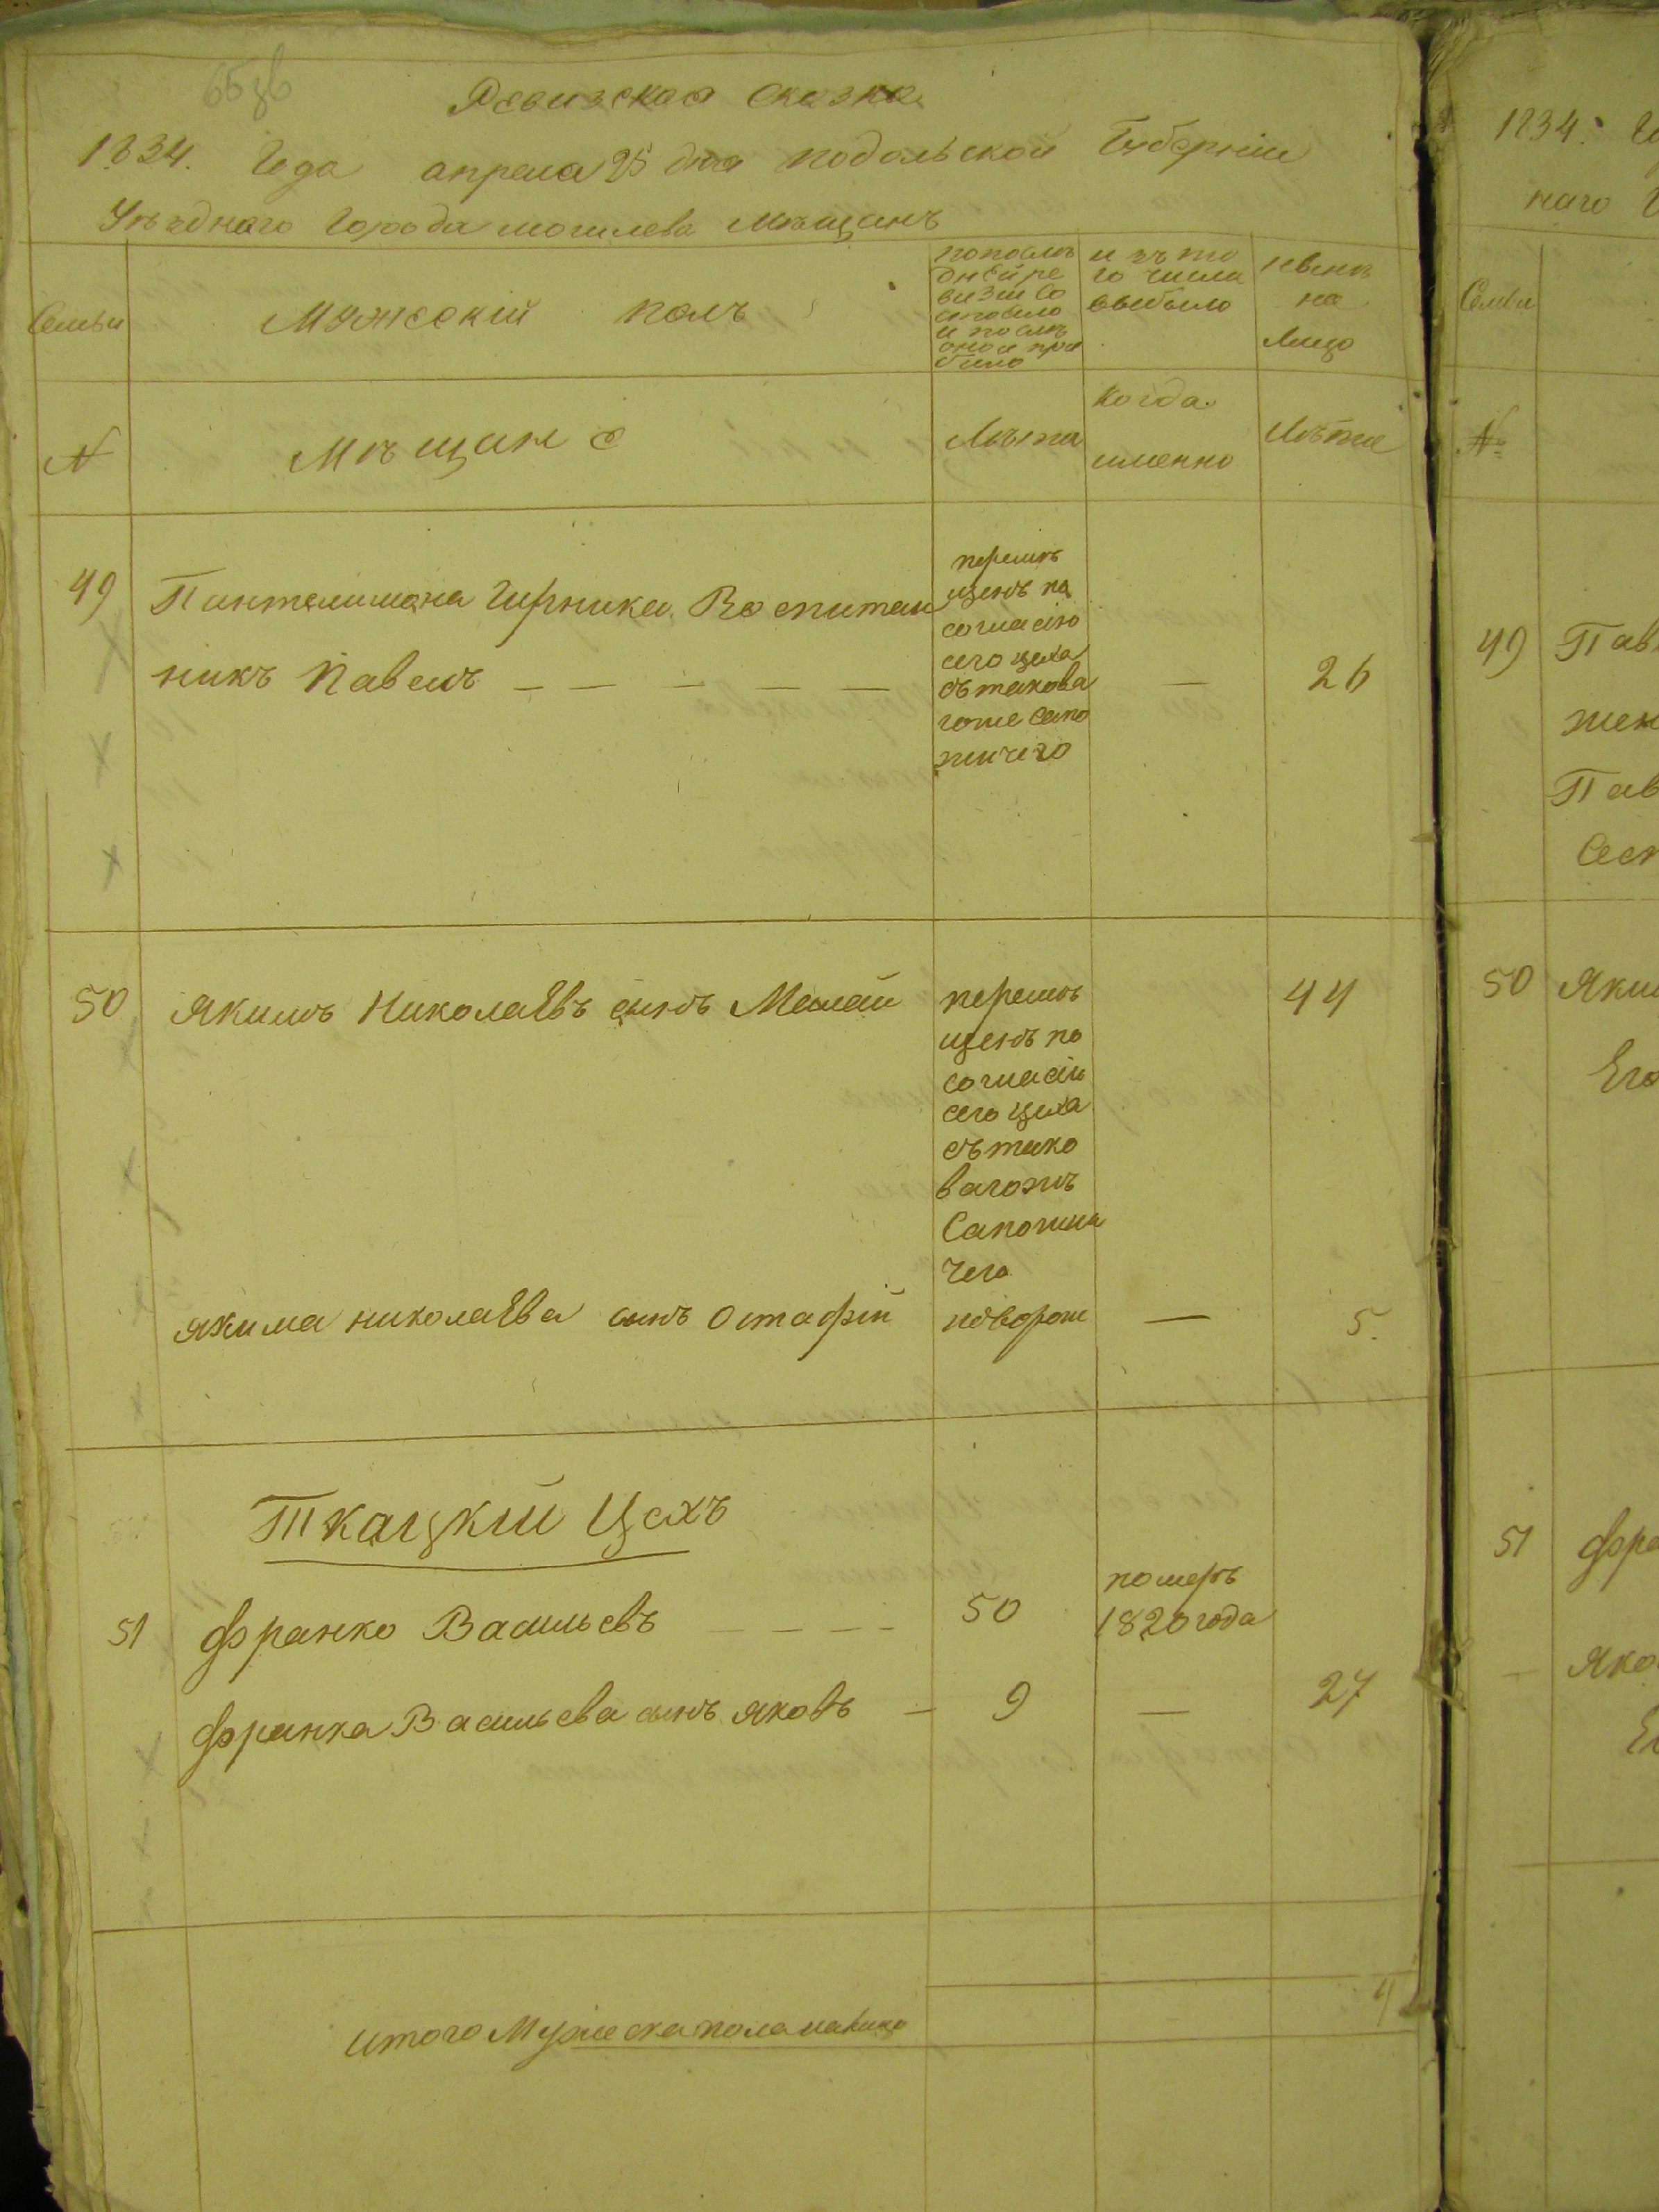 65зв
Ревизская сказка
1834. Года апреля 25 дня подольской Губернии
Уѣзднаго Города могилева мѣщанъ
Семьи
Мужескій полъ
по послѣ
дней ре
визіи со
стояло
и послѣ
оной при
было
изъ то
го числа
выбыло
нынѣ
на
лицо
№
Мѣщане
Лѣта
когда
именно
Лѣта
49
Пантелимона Гирника Воспитан
никъ Павелъ
перемѣ
щенъ по
согласію
сего цеха
съ такова
гоже сапо
жничего
—
26
50
Якимъ Николаевъ сынъ Малай
перемѣ
щенъ по
согласію
сего цеха
съ тако
вагожъ
Сапожни
чего
44
якима николаева сынъ Остафій
новорож
—
5.
Ткацкій Цехъ
51
Франко Васильевъ
50
померъ
1820 года
Франка Васильева сынъ яковъ
—
9
—
27
итого Мужеска пола налицо
4
1834.
наго
Семьи
№
49
Пав
жен
Пав
Сес
50
Яки
Его
51
Фра
Яко
Ег